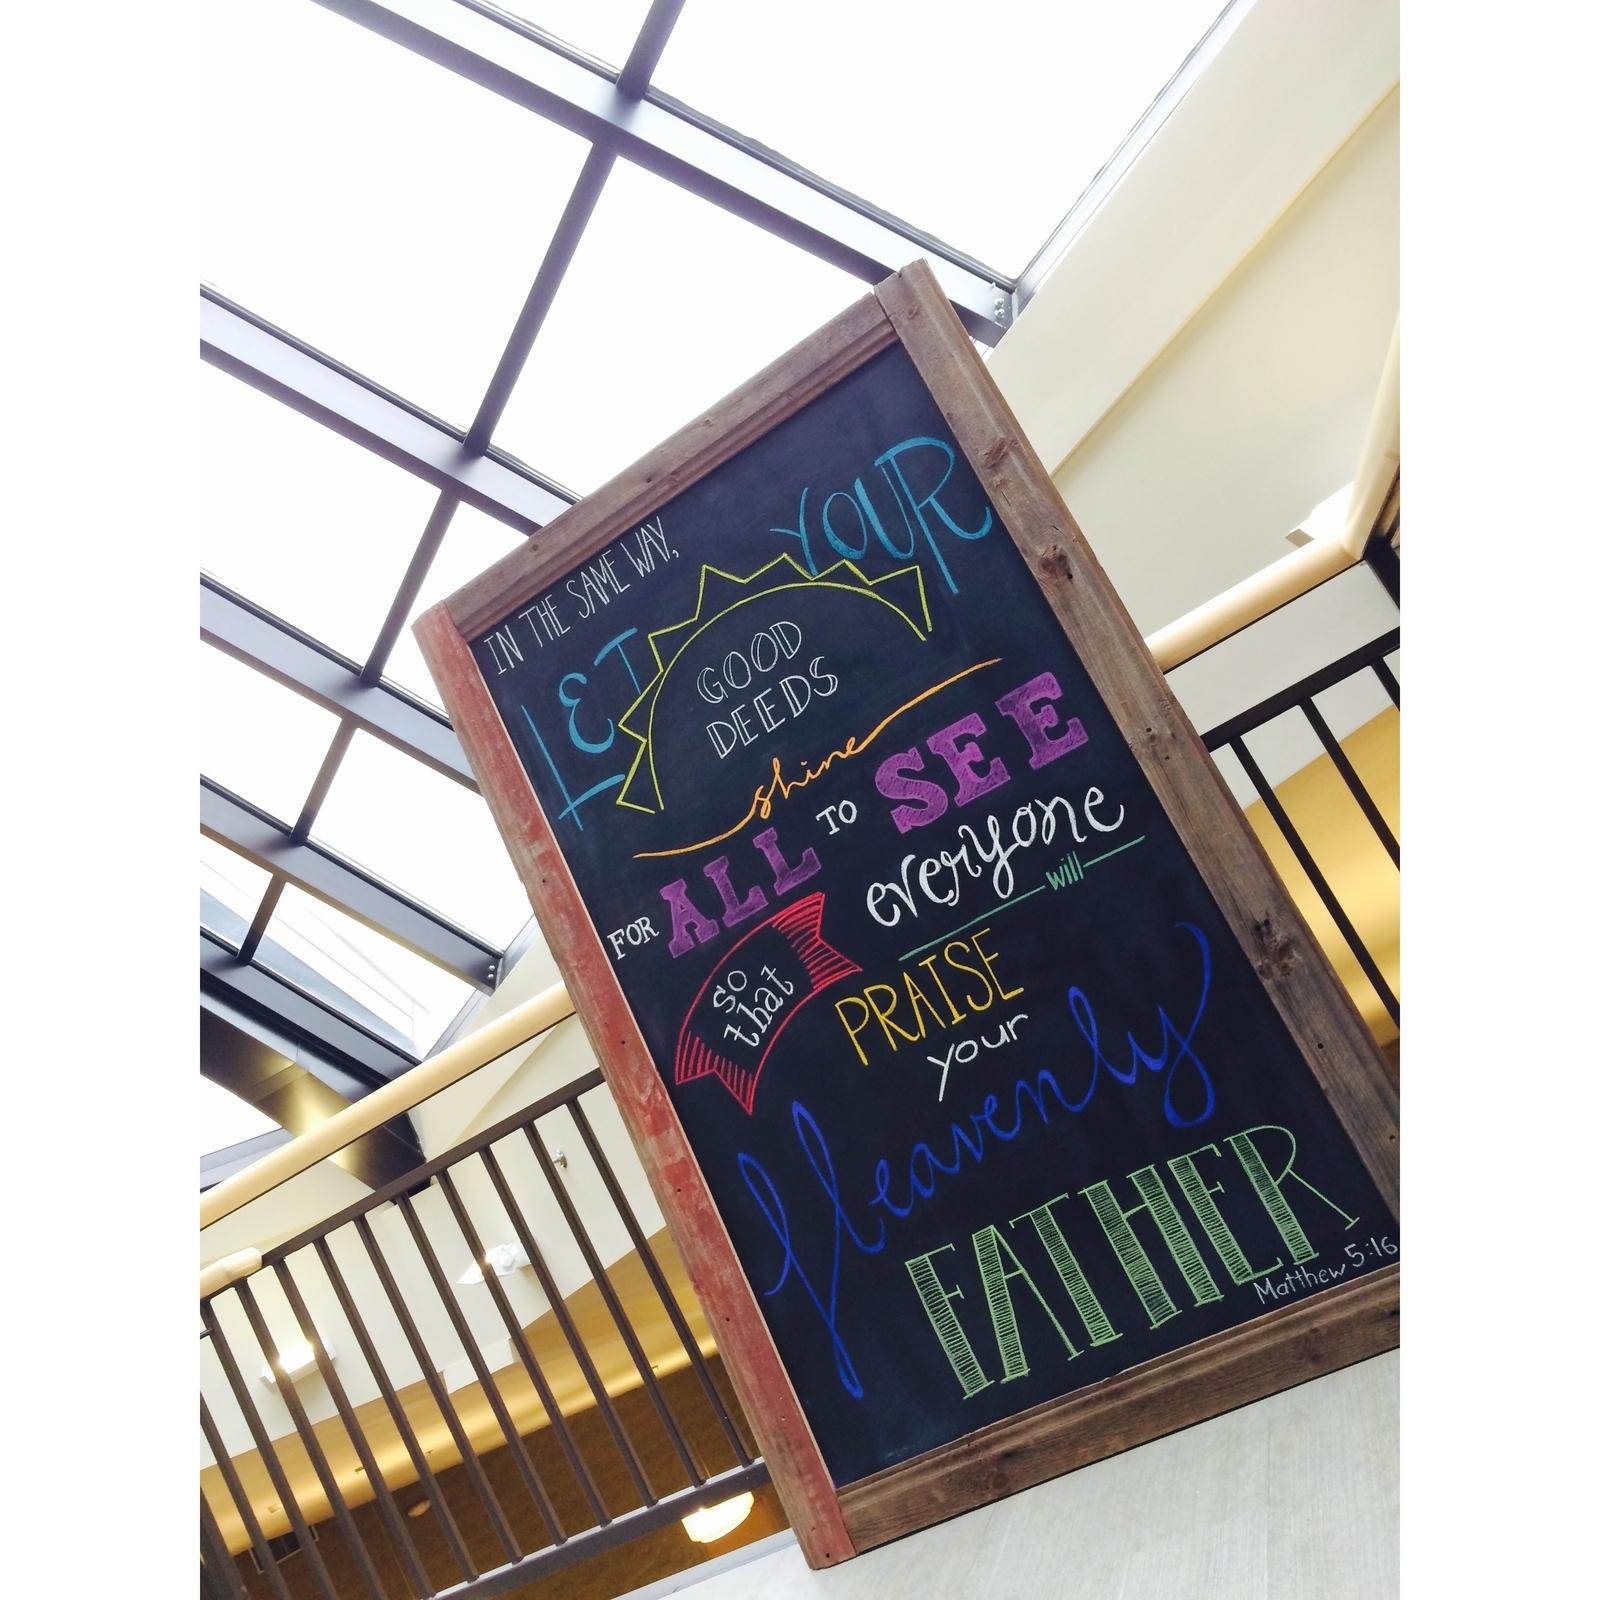 IN THE SAME WAY,
LET YOUR
GOOD
DEEDS
shine
FOR ALL TO SEE
so
that
everyone
will
PRAISE
your
Heavenly
FATHER
Matthew 5:16